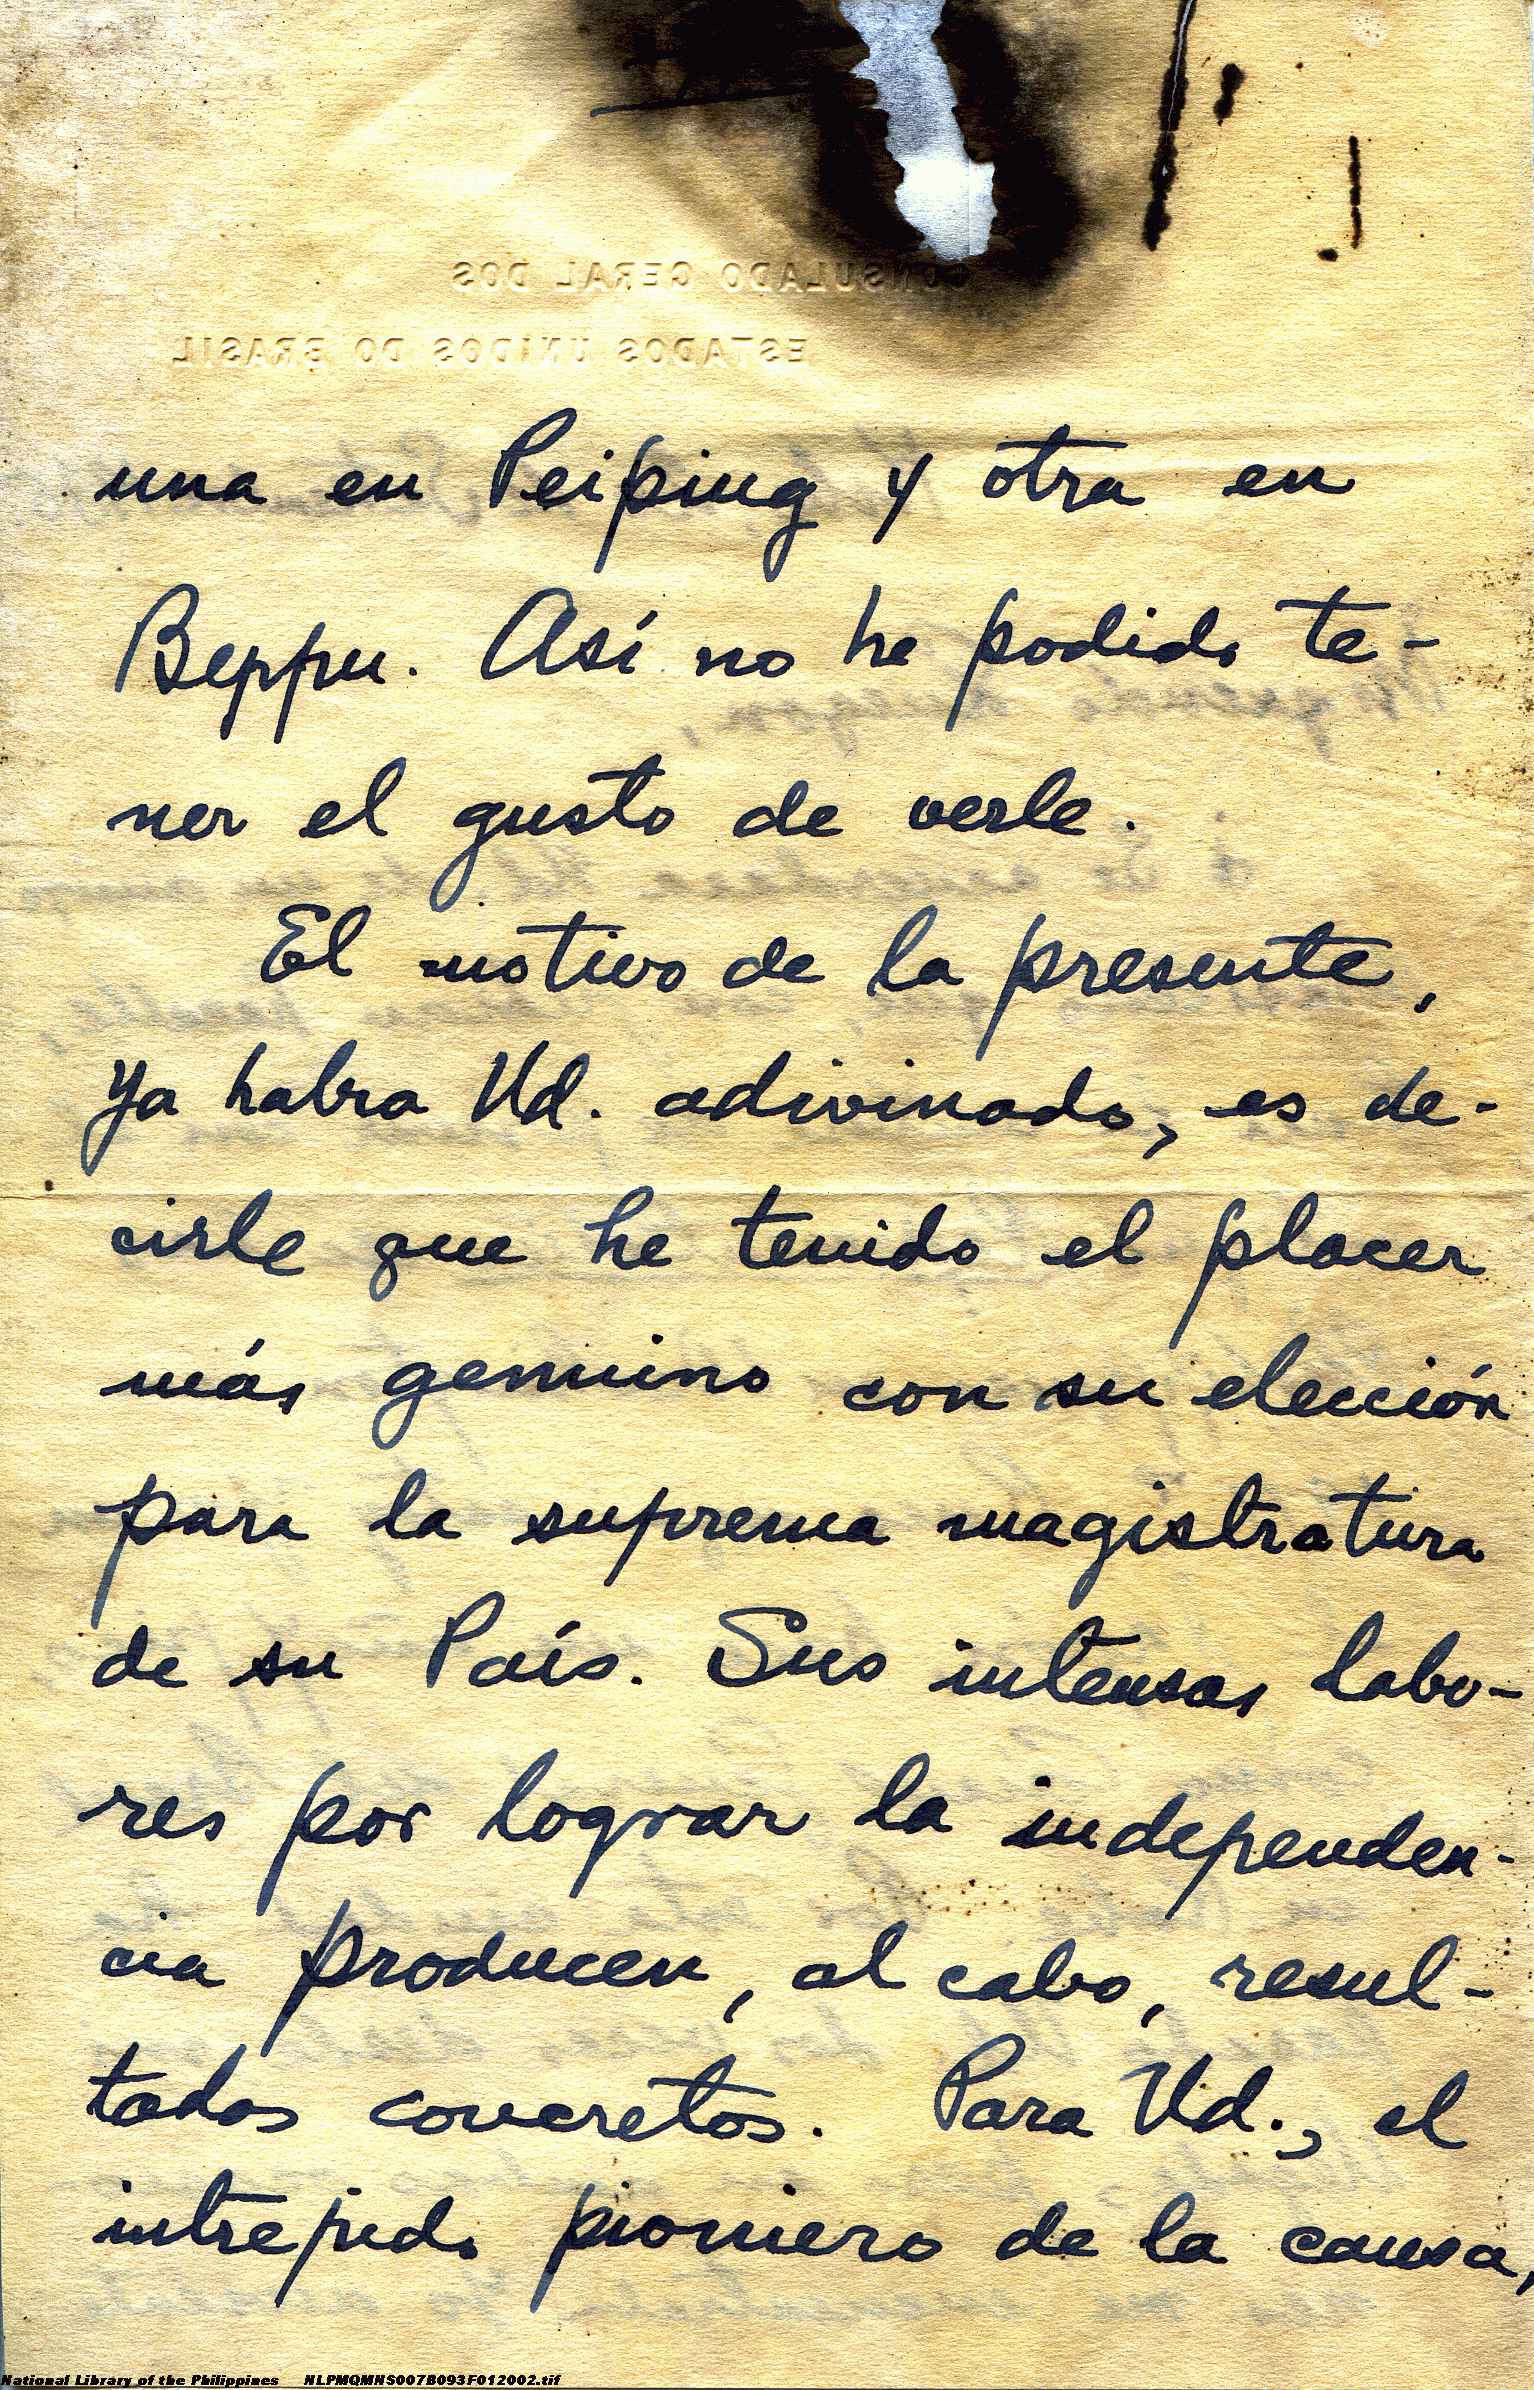 CONSULADO GERAL DOS
ESTADOS UNIDOS DO BRASIL
una en Peiping y otra en
Beppu. Así no he podido te-
ner el gusto de verle.
El motivo de la presente,
ya habra Ud. adivinado, es de-
cirle que he tenido el placer
más genuino con su elección
para la suprema magistratura
de su País. Sus intensas labo-
res por lograr la independen-
cia producen, al cabo, resul-
tados concretos. Para Ud., el
intrepido pioniero de la causa,
National Library of the Philippines NLPMQMNS007B093F012002.tif